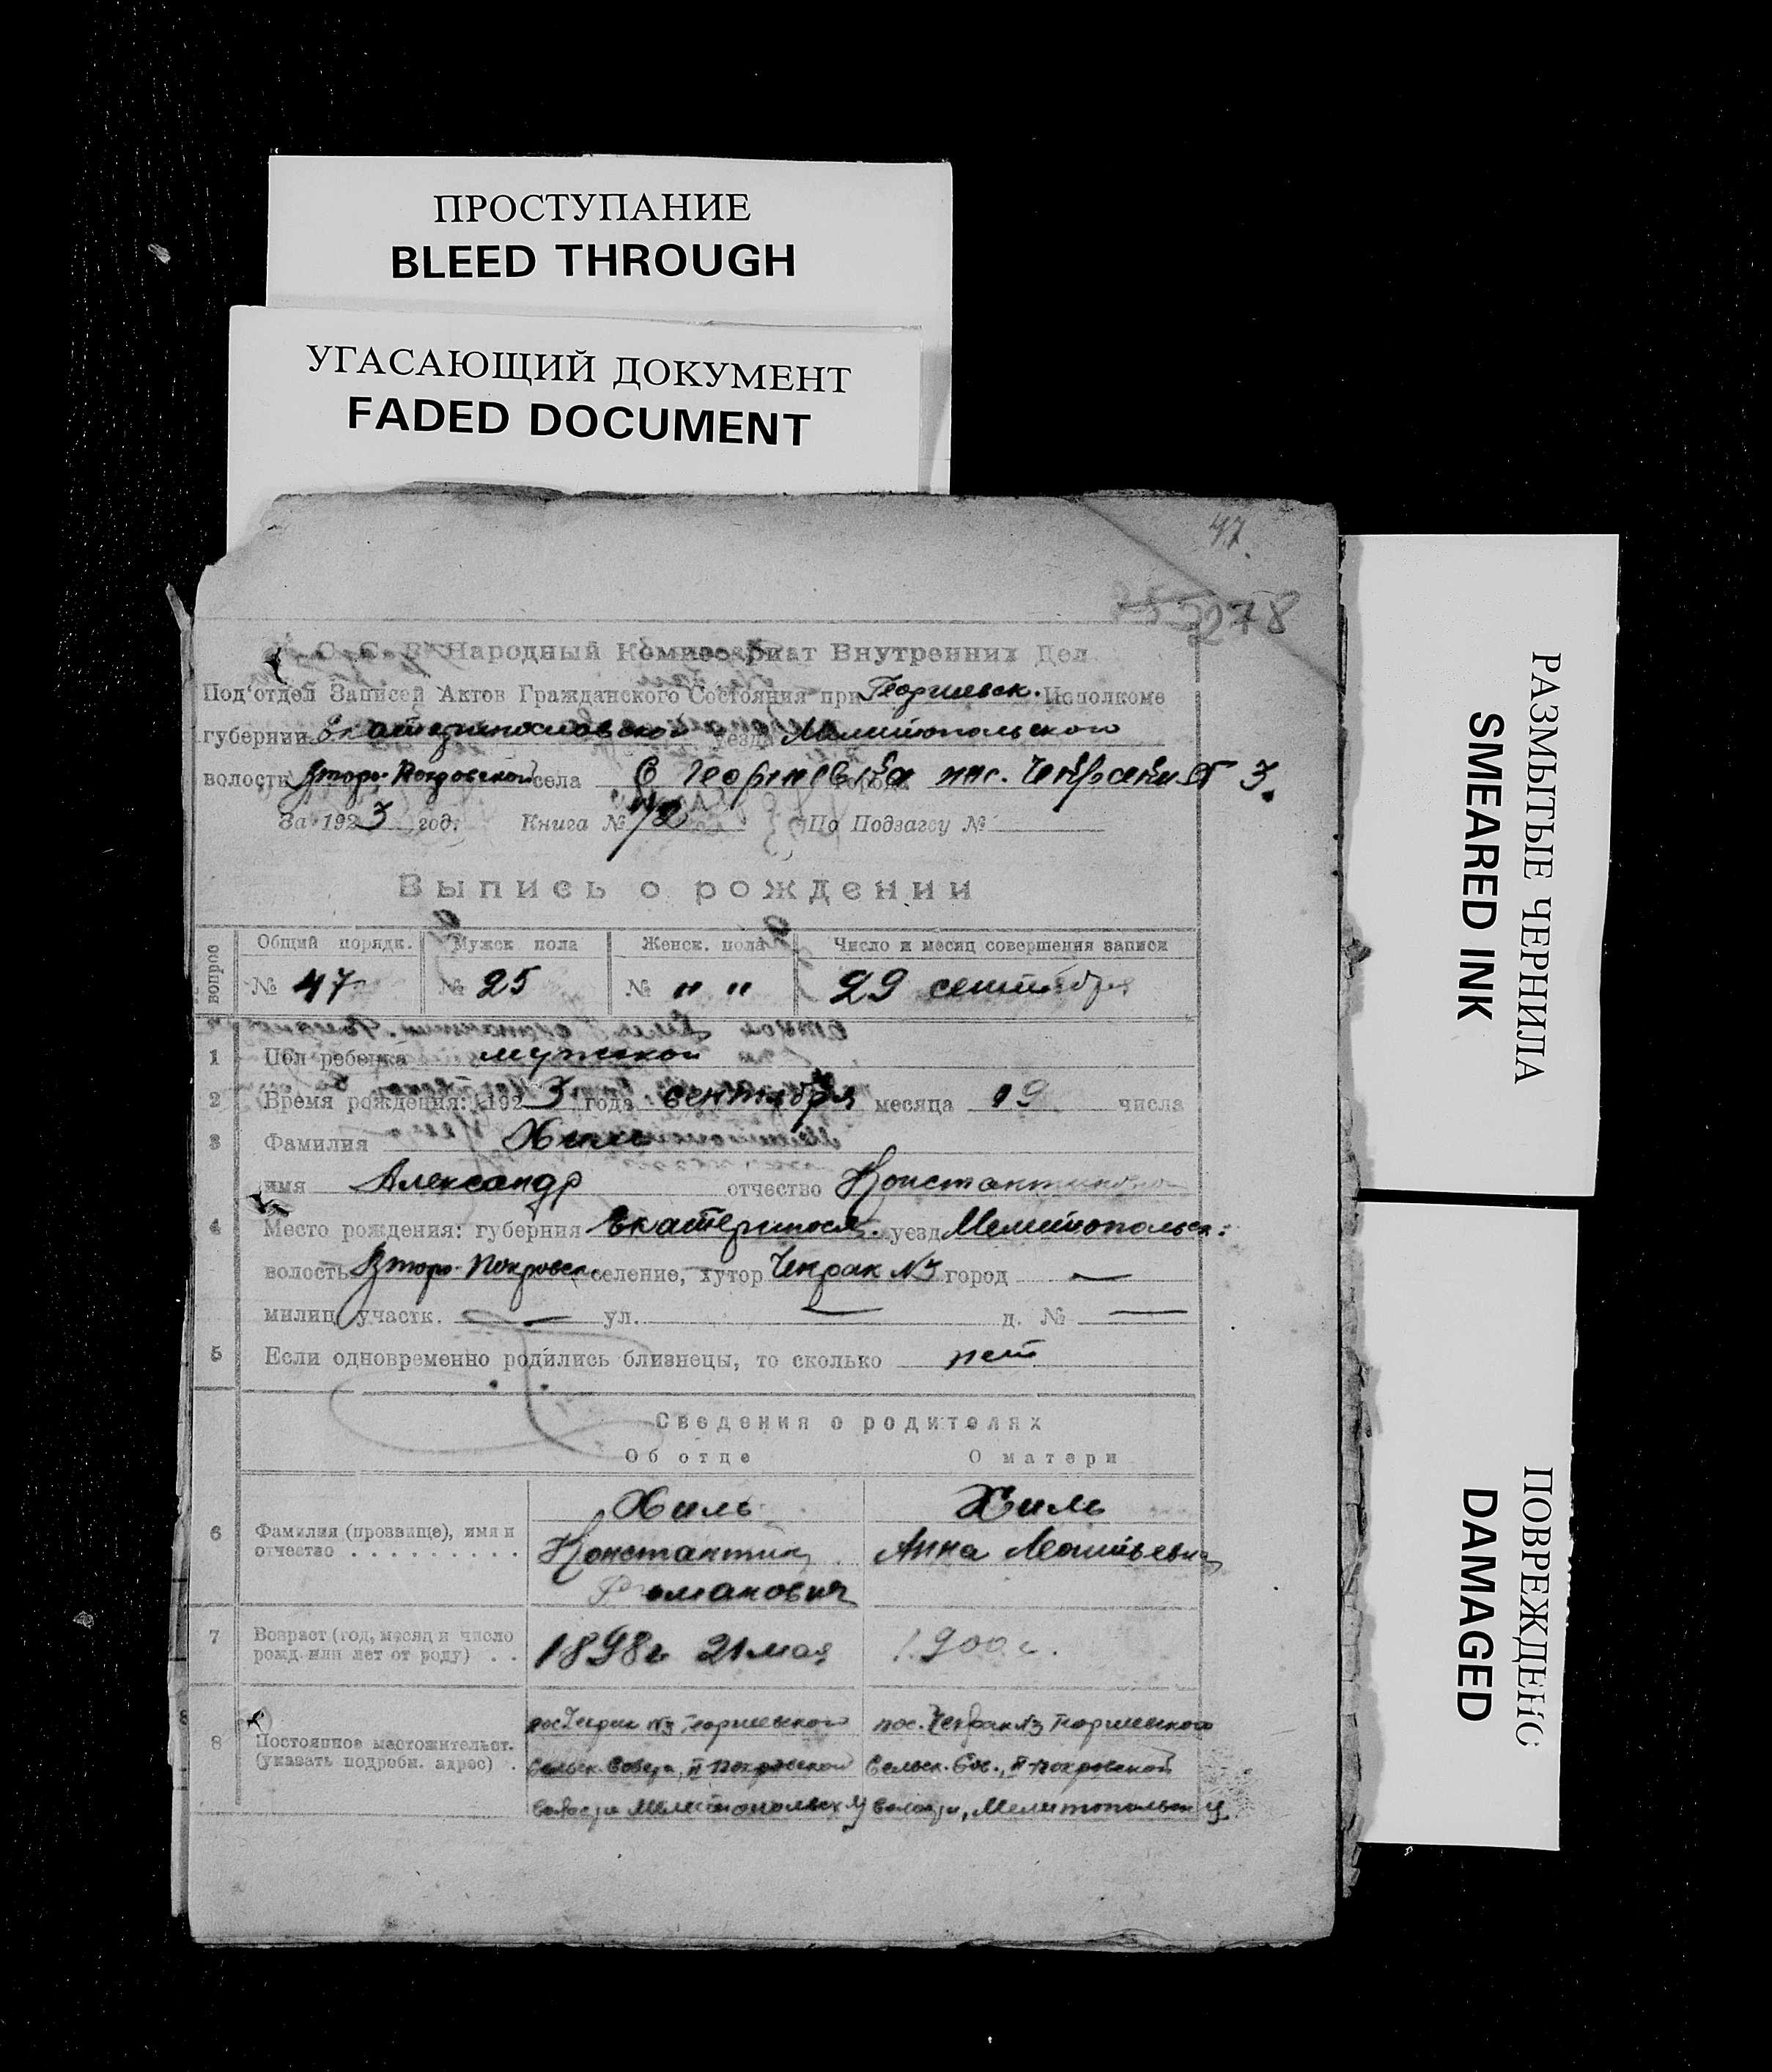 ПРОСТУПАНИЕ
BLEED THROUGH
УГАСАЮЩИЙ ДОКУМЕНТ
FADED DOCUMENT
47.
278
С. С. Р. Народный Комиссариат Внутренних Дел
Под'отдел Записей Актов Гражданского Состояния при Георгиевск. Исполкоме
губернии Екатеринославской уезда Мелитопольского
волости Второ-Покровской села с Георгиевка города пос. 3.
За 1923 год. Книга № 1/2 По Подзагсу №
Выпись о рождении
вопрос Общий порядк. Мужск пола Женск. пола Число и месяц совершения записи
№ 47 № 25 № " " 29 сентября
1 Пол ребенка мужской
2 Время рождения: 1923 года сентября месяца 19 числа
3 Фамилия Хиль
имя Александр отчество Константинович
4 Место рождения: губерния Екатеринослав. уезд Мелитопольск:
волость Второ-Покровск. селение, хутор Чекрак №3 город —
милиц. участк. — ул. — д. № —
5 Если одновременно родились близнецы, то сколько нет
Сведения о родителях
Об отце О матери
6 Фамилия (прозвище), имя и отчество . . . . . . . . .
Хиль Хиль
Константин Анна
Романович
7 Возраст (год, месяц и число рожд. или лет от роду) . .
1898 г 21 мая 1900 г.
8 Постоянное местожительст. (указать подробн. адрес) .
пос. Чекрак №3 Георгиевского пос. Чекрак №3 Георгиевского
Сельск. Совета, II Покровской Сельск. Сов., II Покровской
волости Мелитопольск у волости, Мелитопольск у
РАЗМЫТЫЕ ЧЕРНИЛА
SMEARED INK
ПОВРЕЖДЕНО
DAMAGED